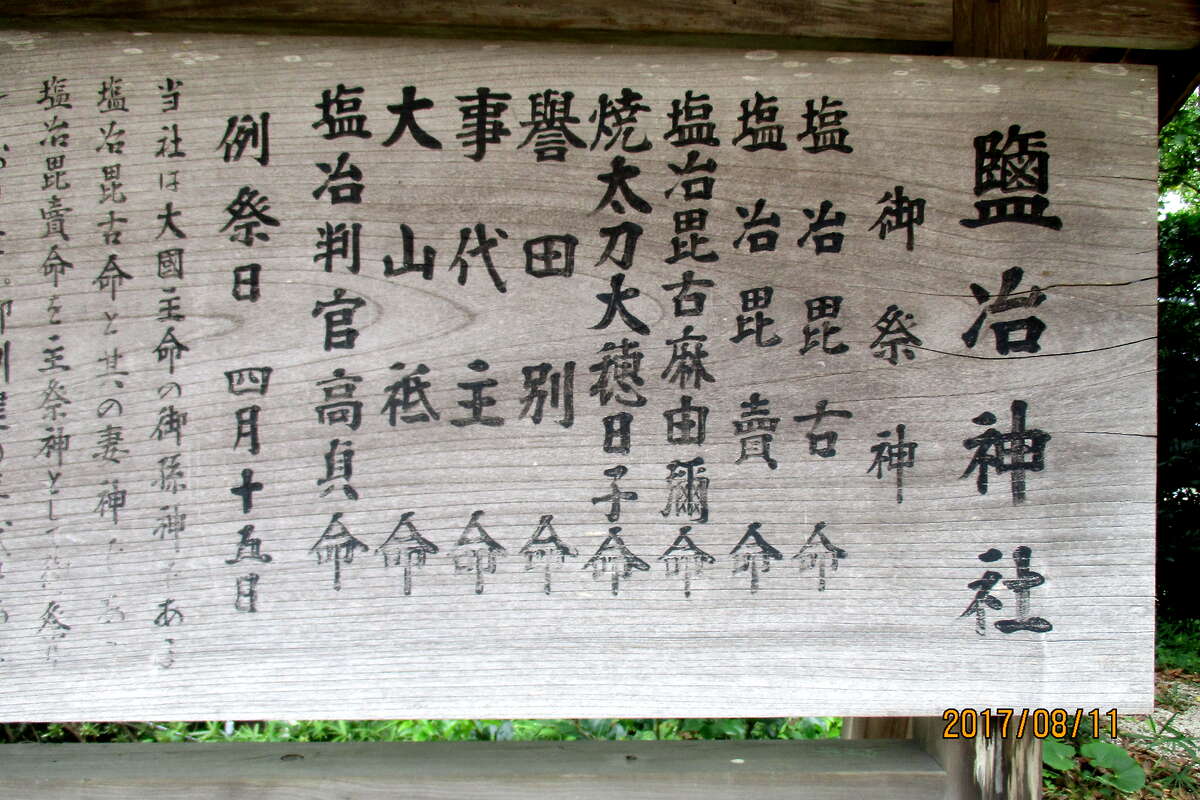 鹽冶神社
御祭神
塩冶毘古命
塩冶毘賣命
塩冶毘古麻由彌命
焼太刀大穂日子命
譽田別命
事代主命
大山祇命
塩冶判官高貞命
例祭日 四月十五日
当社は大國主命の御孫神にあ
塩冶毘古命と其の妻神
塩冶毘賣命を主祭神として
2017/08/11